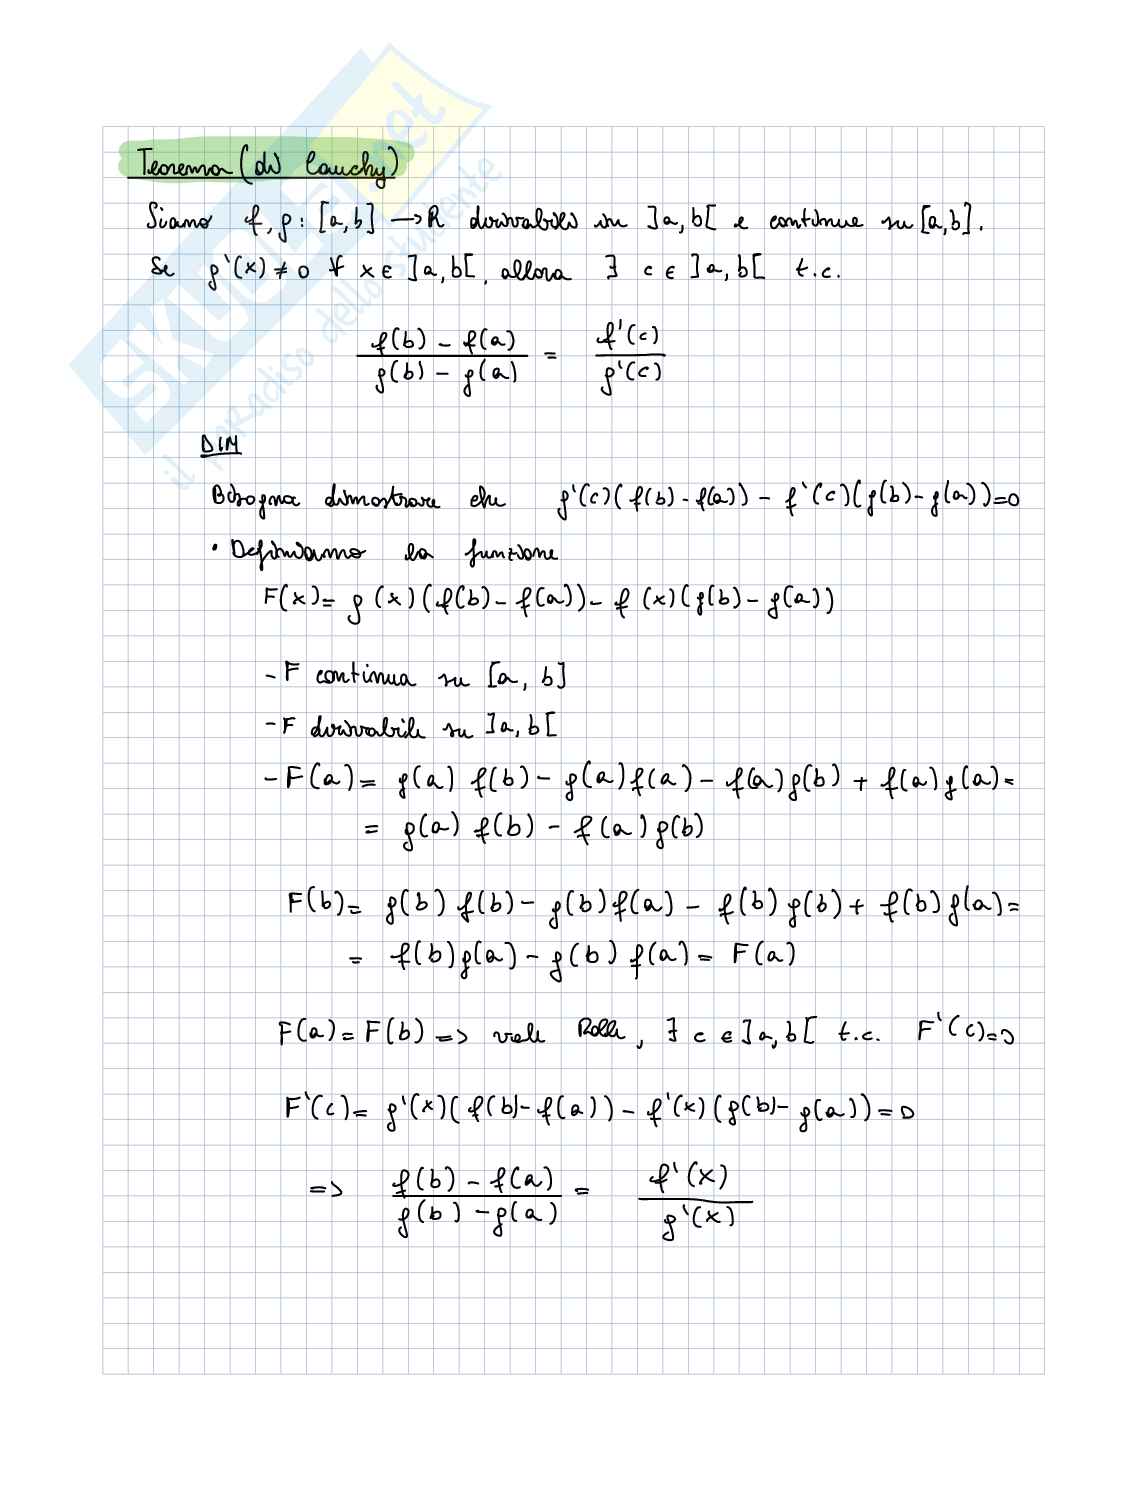 Teorema (di Cauchy)
Siano f, g : [a,b] → R derivabili su ]a,b[ e continue su [a,b].
Se g'(x) ≠ 0 ∀ x ∈ ]a,b[, allora ∃ c ∈ ]a,b[ t.c.
(f(b) - f(a)) / (g(b) - g(a)) = f'(c) / g'(c)
DIM
Bisogna dimostrare che g'(c)(f(b) - f(a)) - f'(c)(g(b) - g(a)) = 0
• Definiamo la funzione
F(x) = g(x)(f(b) - f(a)) - f(x)(g(b) - g(a))
- F continua su [a, b]
- F derivabile su ]a, b[
- F(a) = g(a) f(b) - g(a) f(a) - f(a) g(b) + f(a) g(a) =
= g(a) f(b) - f(a) g(b)
F(b) = g(b) f(b) - g(b) f(a) - f(b) g(b) + f(b) g(a) =
= f(b) g(a) - g(b) f(a) = F(a)
F(a) = F(b) => vale Rolle, ∃ c ∈ ]a, b[ t.c. F'(c) = 0
F'(c) = g'(x)(f(b) - f(a)) - f'(x)(g(b) - g(a)) = 0
=> (f(b) - f(a)) / (g(b) - g(a)) = f'(x) / g'(x)
SKUOLA.net
il paradiso dello studente